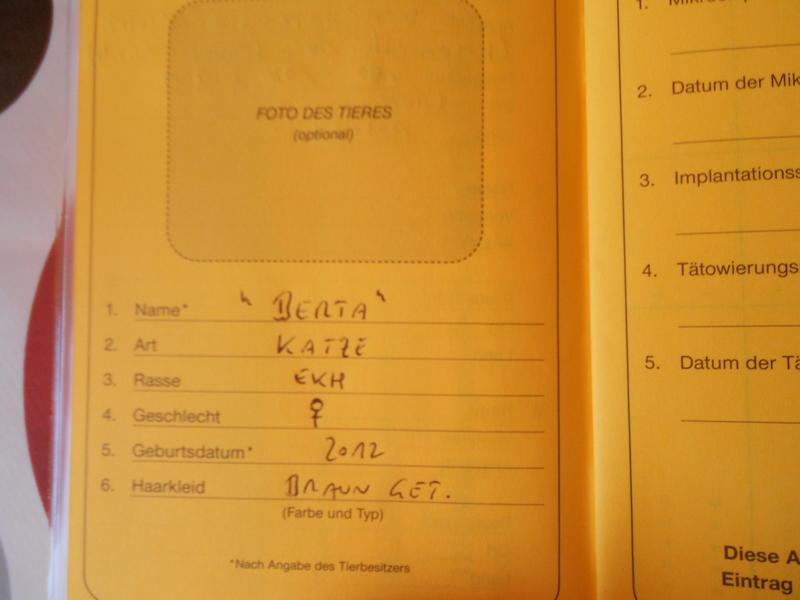 FOTO DES TIERES
(optional)
1. Name* "BERTA"
2. Art KATZE
3. Rasse EKH
4. Geschlecht ♀
5. Geburtsdatum* 2012
6. Haarkleid BRAUN GET.
(Farbe und Typ)
*Nach Angabe des Tierbesitzers
1.
2. Datum der Mik
3. Implantationss
4. Tätowierungs
5. Datum der Tä
Diese A
Eintrag